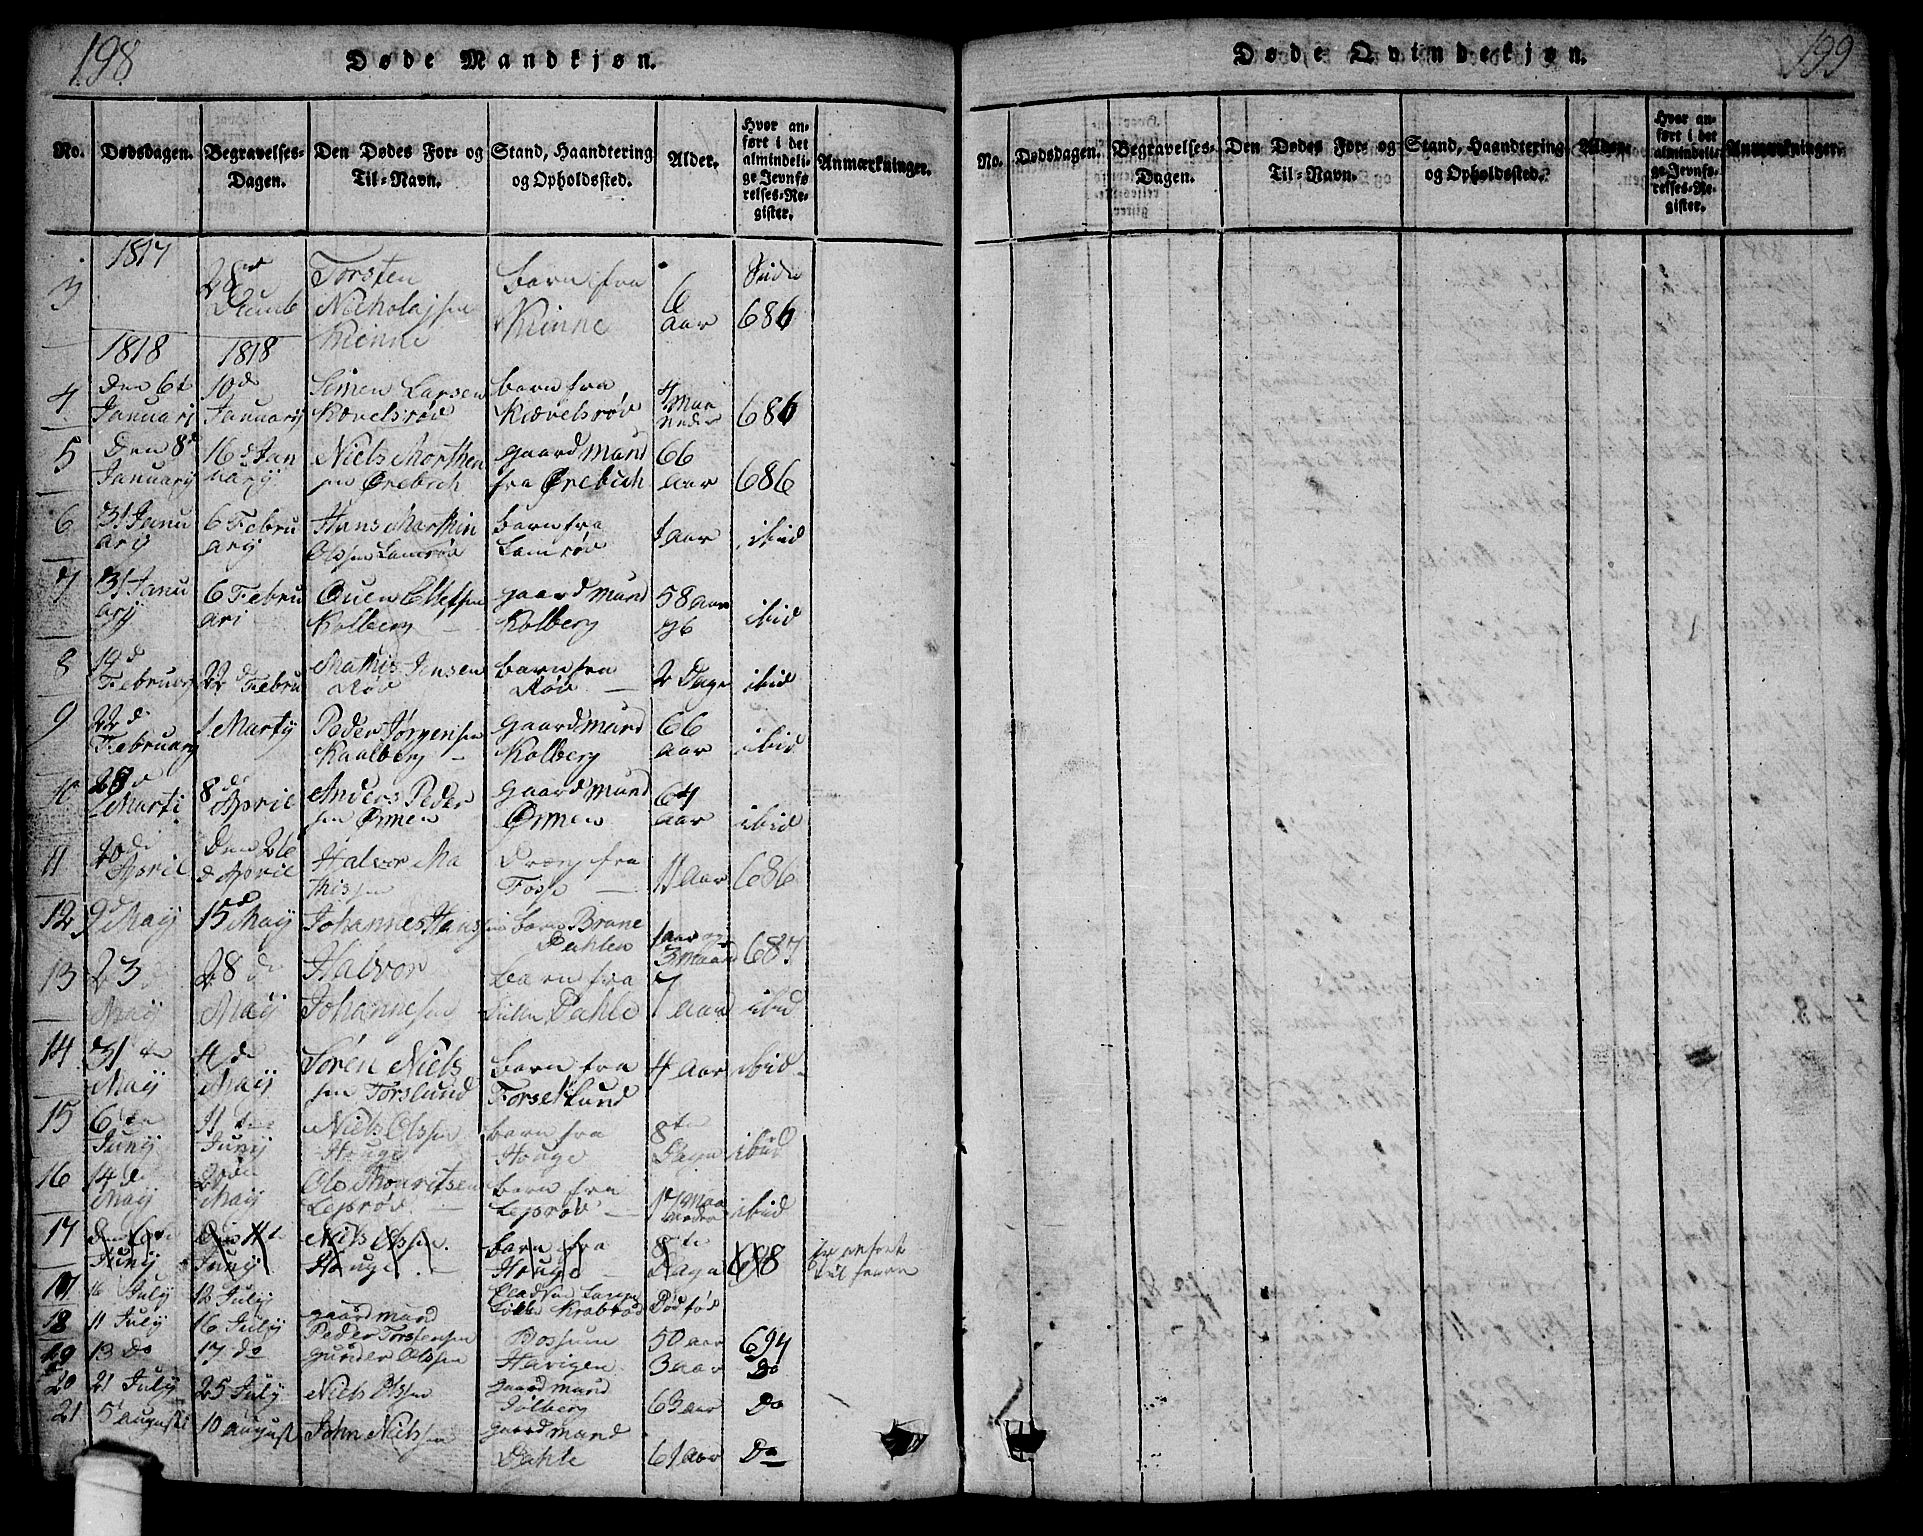 198.
Døde Mandkjøn.
No.
Dødsdagen.
Begravelses-
Dagen.
Den Dødes For- og
Til-Navn.
Stand, Haandtering
og Opholdssted.
Alder.
Hvor an-
ført i det
almindeli-
ge Jevnfø
relses-Re-
gister.
Anmærkninger.
1817
3
28de
Decemb
Torsten
Nicholajsen
Kinne
barn fra
Kinne
6
aar
Side
686
1818
1818
4
den 6te
Januari
10de
Januarij
Simen Larsen
Kævelsrøv
barn fra
Kiævelsrøv
4 Maa
neder
686
5
Den 8d
Januarij
16 d Jan
uarij
Niels Morthen
sen Ørebech
gaardmand
fra Ørebech
66
aar
686
6
31 Janu
arij
6 Febru
arij
Hans Marthin
Olssen Lamrøv
barn fra
Lamrøv
1 aar
ibid
7
31 Janu
arij
6 Febru
ari
Ouen Ellefsen
Kolberg
gaardmand
Kolberg
58 aar
ibid
8
14 d
Februarij
22 d Febru
Mathis Jensen
Røv
barn fra
Røv
2 Dage
ibid
9
22 d
Februarij
1 Martij
Peder Jørgensen
Kaalberg
gaardmand
Kolberg
66
aar
ibid
10
28 d
Marti
8 d
April
Anders Peder
sen Ørmen
gaardmand
Ørmen
64
aar
ibid
11
20 d
April
Den 26
d April
Halvor Ma
thissen
Dreng fra
Fosse
11 aar
686
12
9d Maij
15d Maij
Johannes Hans
barn Brane
Dahlen
1 aar og
3 maaned
687
13
23 d
Maij
28 d
Maij
Halvor
Johannesen
barn fra
Dahle
7 aar
ibid
14
31 te
Maij
4 de
Maij
Søren Niels
sen Torslund
barn fra
Forsetlund
4 aar
ibid
15
6 te
Junij
11 te
Junij
Niels Olssen
Houge
barn fra
Houge
8te
Dagen
ibid
16
14 d
Maij
Maij
Ole Mouritsen
Leprøv
barn fra
Leprøv
17 Maa
neder
ibid
17
den 6te
Junij
Den 11te
Junij
Niels Olssen
Houge
barn fra
Houge
8te
Dagen
698
er anført
17
6 July
12 July
Krabrød
Dødfød
18
11 July
16 July
gaardmand
Peder Torstensen
Bossum
50 aar
694
19
13 Do
17 do
Gunder Olssen
Havigen
3 aar
Do
20
21 July
25 July
Niels Olssen
gaardmand
Jølberg
63 aar
Do
21
5 August
10 august
John Nielssen
gaardmand
Dahle
61 aar
Do
199
Døde Qvindekjøn.
No.
Dødsdagen.
Begravelses-
Dagen.
Den Dødes For- og
Til-Navn.
Stand, Haandtering
og Opholdssted.
Alder.
Hvor an-
ført i det
almindeli-
ge Jevnfø
relses-Re-
gister.
Anmærkninger.